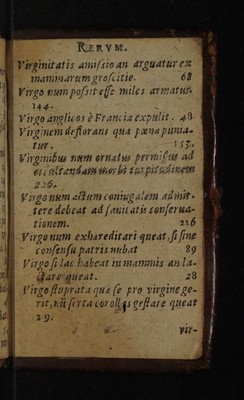 RERVM.
Virginitatis amissio an arguatur ex
mammarum grossitie. 68
Virgo num possit esse miles armatus.
144.
Virgo anglicos è Francia expulit. 48
Virginem deflorans qua pœna punia-
tur. 153.
Virginibus num ornatus permissus ad
occultandam morbi turpitudinem
226.
Virgo num actum coniugalem admit-
tere debeat ad sanitatis conserua-
tionem. 216
Virgo num exhareditari queat, si sine
consensu patris nubat 89
Virgo si lac habeat in mammis an la-
ctare queat. 28
Virgo stuprata qua se pro virgine ge-
rit, nũ serta corollas gestare queat
29.
vir-